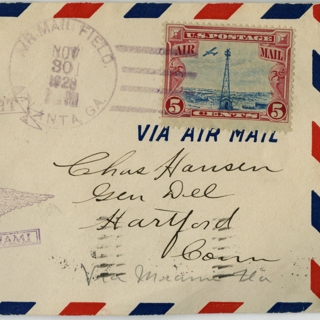 AIR MAIL FIELD.
NOV
30
1928
ANTA, GA.
U.S. POSTAGE
AIR MAIL
5 5
CENTS
VIA AIR MAIL
Chas Hansen
Gen Del
Hartford
Conn
Via Miami Fla
IAMI